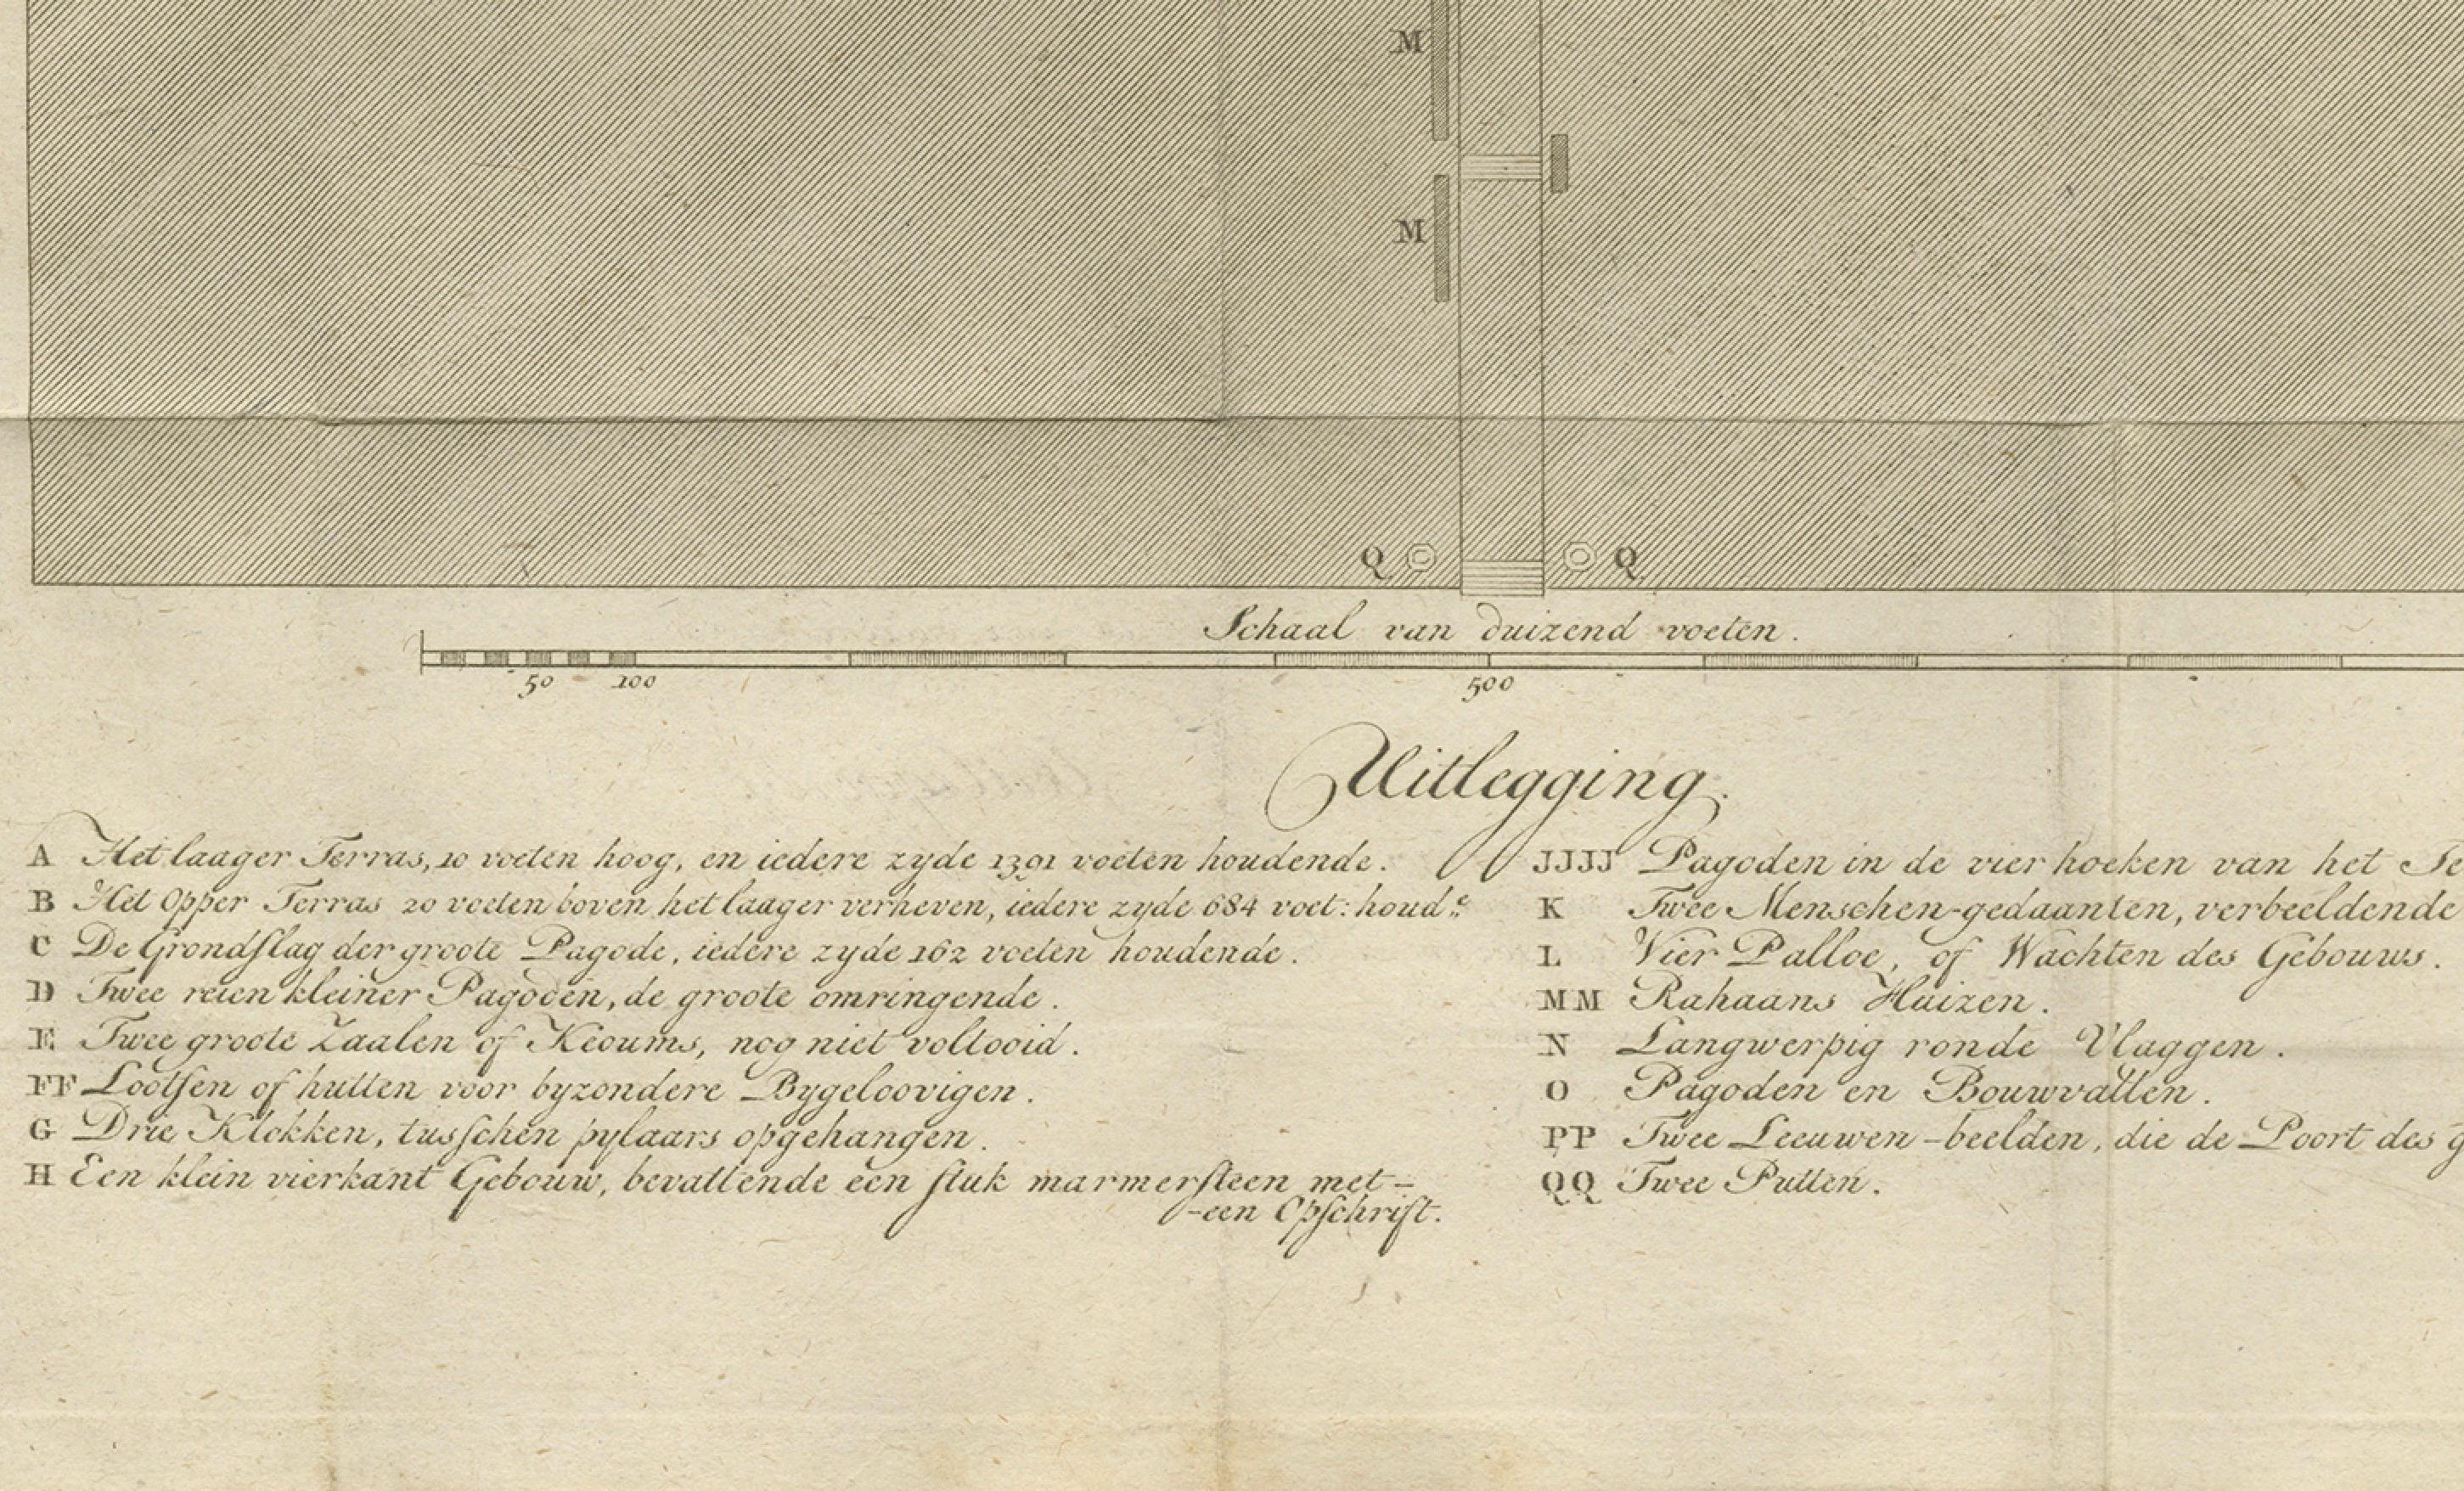 M
M
Q Q
Schaal van duizend voeten.
50 100 500
Uitlegging.
A Het laager Terras, 10 voeten hoog, en iedere zyde 1391 voeten houdende.
B Het Opper Terras 20 voeten boven het laager verheven, iedere zyde 684 voet: houd.e
C De Grondſlag der groote Pagode, iedere zyde 162 voeten houdende.
D Twee reien kleiner Pagoden, de groote omringende.
E Twee groote Zaalen of Kioums, nog niet voltooid.
FF Lootſen of hutten voor byzondere Bygeloovigen.
G Drie Klokken, tusſchen pylaars opgehangen.
H Een klein vierkant Gebouw, bevattende een ſtuk marmerſteen met-
-een Opſchrift.
JJJJ Pagoden in de vier hoeken van het Te
K Twee Menschen-gedaanten, verbeeldende
L Vier Palloe, of Wachten des Gebouws.
MM Rahaans Huizen.
N Langwerpig ronde Vlaggen.
O Pagoden en Bouwvallen.
PP Twee Leeuwen-beelden, die de Poort des g
QQ Twee Putten.